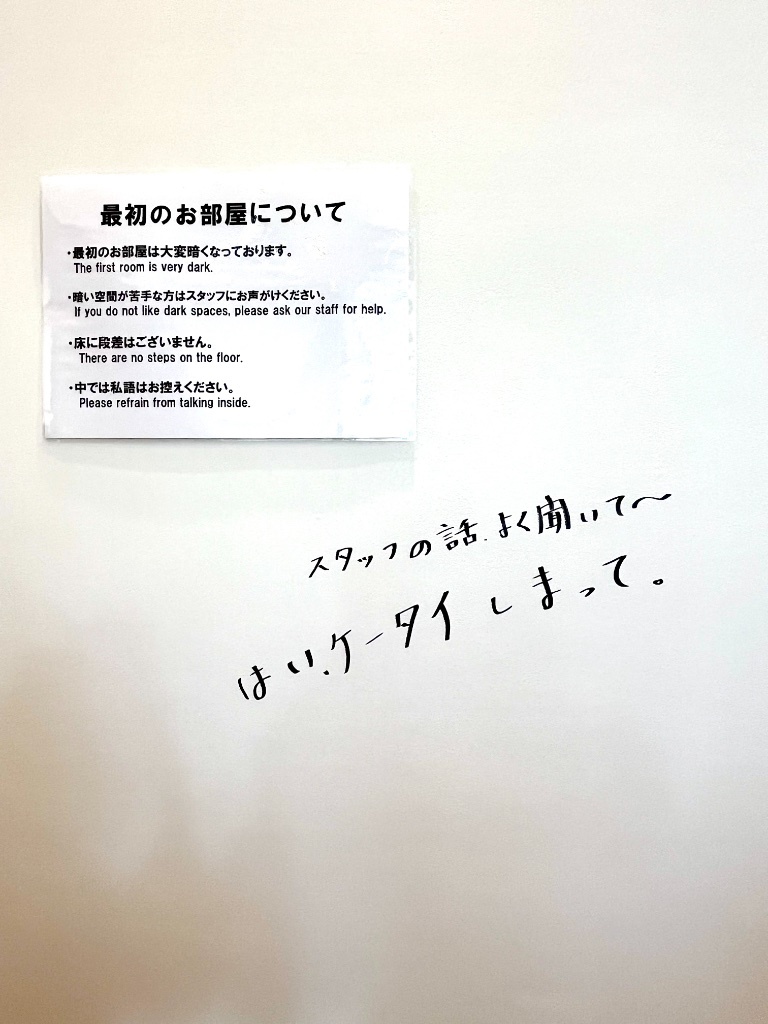 最初のお部屋について
・最初のお部屋は大変暗くなっております。
The first room is very dark.
・暗い空間が苦手な方はスタッフにお声がけください。
If you do not like dark spaces, please ask our staff for help.
・床に段差はございません。
There are no steps on the floor.
・中では私語はお控えください。
Please refrain from talking inside.
スタッフの話、よく聞いて〜
はい、ケータイしまって。